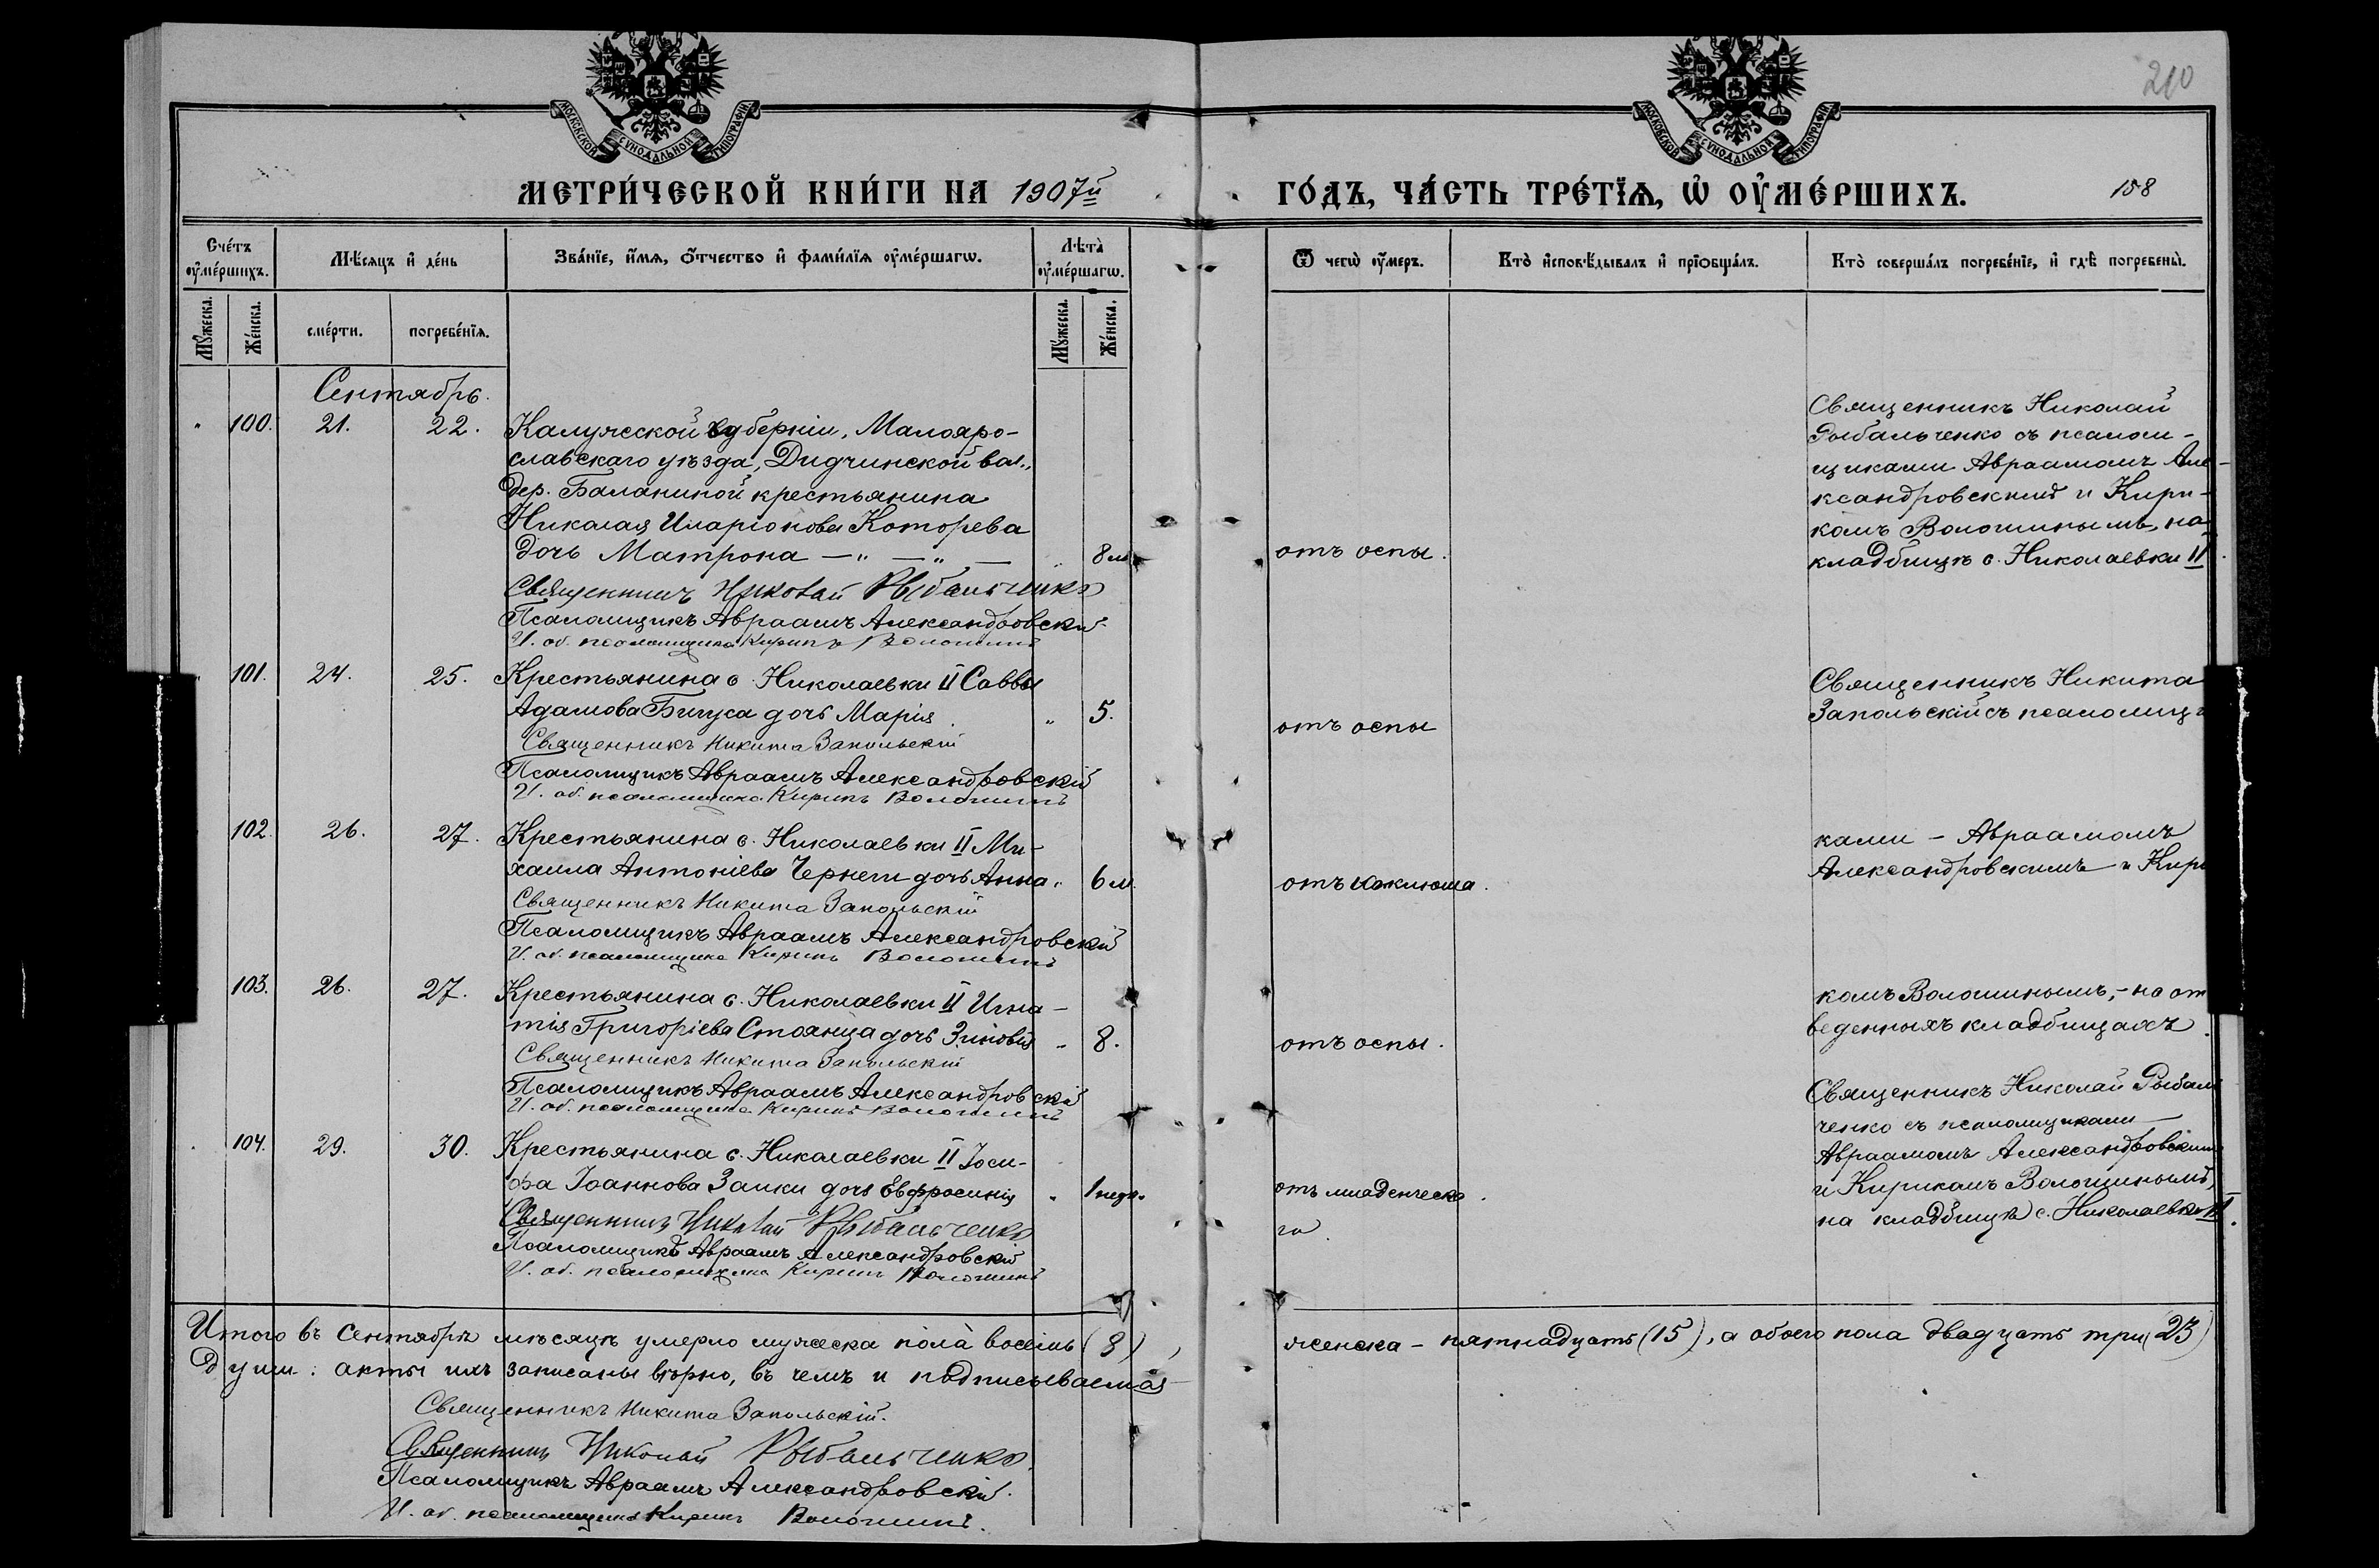 МОСКОВСКОЙ СѴНОДАЛЬНОЙ ТИПОГРАФІИ
МОСКОВСКОЙ СѴНОДАЛЬНОЙ ТИПОГРАФІИ
210
МЕТРИ́ЧЕСКОЙ КНИ́ГИ НА 1907й
ГО́ДЪ, ЧА́СТЬ ТРЕ́ТЇѦ, Ѡ ОУ҆МЕ́РШИХЪ.
158
Сче́тъ оу҆ме́ршихъ.
Мѣ́сяцъ и҆ де́нь
Зва́нїе, и҆́мѧ, ѻ҆́тчество и҆ фами́лїѧ оу҆ме́ршагѡ.
Лѣта̀ оу҆ме́ршагѡ.
Ѿ чегѡ̀ оу҆́меръ.
Кто̀ и҆сповѣ́дывалъ и҆ прїѻбща́лъ.
Кто̀ соверша́лъ погребе́нїе, и҆ гдѣ̀ погребены̀.
Мꙋ́жеска.
Же́нска.
сме́рти.
погребе́нїѧ.
Мꙋ́жеска.
Же́нска.
Сентябрь.
" 100. 21. 22. Калужской губерніи, Малояро-
славскаго уѣзда, Дидчинской вол.,
дер. Баланиной крестьянина
Николая Иларіонова Которева
дочь Матрона — " — " — " 8 м
отъ оспы.
Священникъ Николай Рыбальченко
Псаломщикъ Авраамъ Александровскій
И. об. псаломщика Кирикъ Волошинъ
Священникъ Николай
Рыбальченко съ псалом-
щиками Авраамомъ Але-
ксандровскимъ и Кири-
комъ Волошинымъ, на
кладбищѣ с. Николаевки II.
101. 24. 25. Крестьянина с. Николаевки II Саввы
Адамова Бигуса дочь Марія. " 5.
отъ оспы
Священникъ Никита Запольскій
Псаломщикъ Авраамъ Александровскій
И. об. псаломщика Кирикъ Волошинъ
Священникъ Никита
Запольскій съ псаломщи
102. 26. 27. Крестьянина с. Николаевки II Ми-
хаила Антоніева Чернеги дочь Анна " 6 м.
отъ коклюша.
Священникъ Никита Запольскій
Псаломщикъ Авраамъ Александровскій
И. об. псаломщика Кирикъ Волошинъ
ками - Авраамомъ
Александровскимъ и Кири
103. 26. 27. Крестьянина с. Николаевки II Игна-
тія Григоріева Стоянца дочь Зиновія " 8.
отъ оспы.
Священникъ Никита Запольскій
Псаломщикъ Авраамъ Александровскій
И. об. псаломщика Кирикъ Волошинъ
комъ Волошинымъ, - на от
веденныхъ кладбищахъ.
104. 29. 30. Крестьянина с. Николаевки II Іоси-
фа Іоаннова Заики дочь Евфросинія " 1 нед.
отъ младенческа
го.
Священникъ Николай Рыбальченко
Псаломщикъ Авраамъ Александровскій
И. об. псаломщика Кирикъ Волошинъ
Священникъ Николай Рыбаль
ченко съ псаломщиками
Авраамомъ Александровскимъ
и Кирикомъ Волошинымъ,
на кладбищѣ с. Николаевки II.
Итого въ Сентябрѣ мѣсяцѣ умерло мужеска пола восемь (8),
женска - пятнадцать (15), а обоего пола двадцать три (23)
души: акты ихъ записаны вѣрно, въ чемъ и подписываемся
Священникъ Никита Запольскій.
Священникъ Николай Рыбальченко.
Псаломщикъ Авраамъ Александровскій.
И. об. псаломщика Кирикъ Волошинъ.